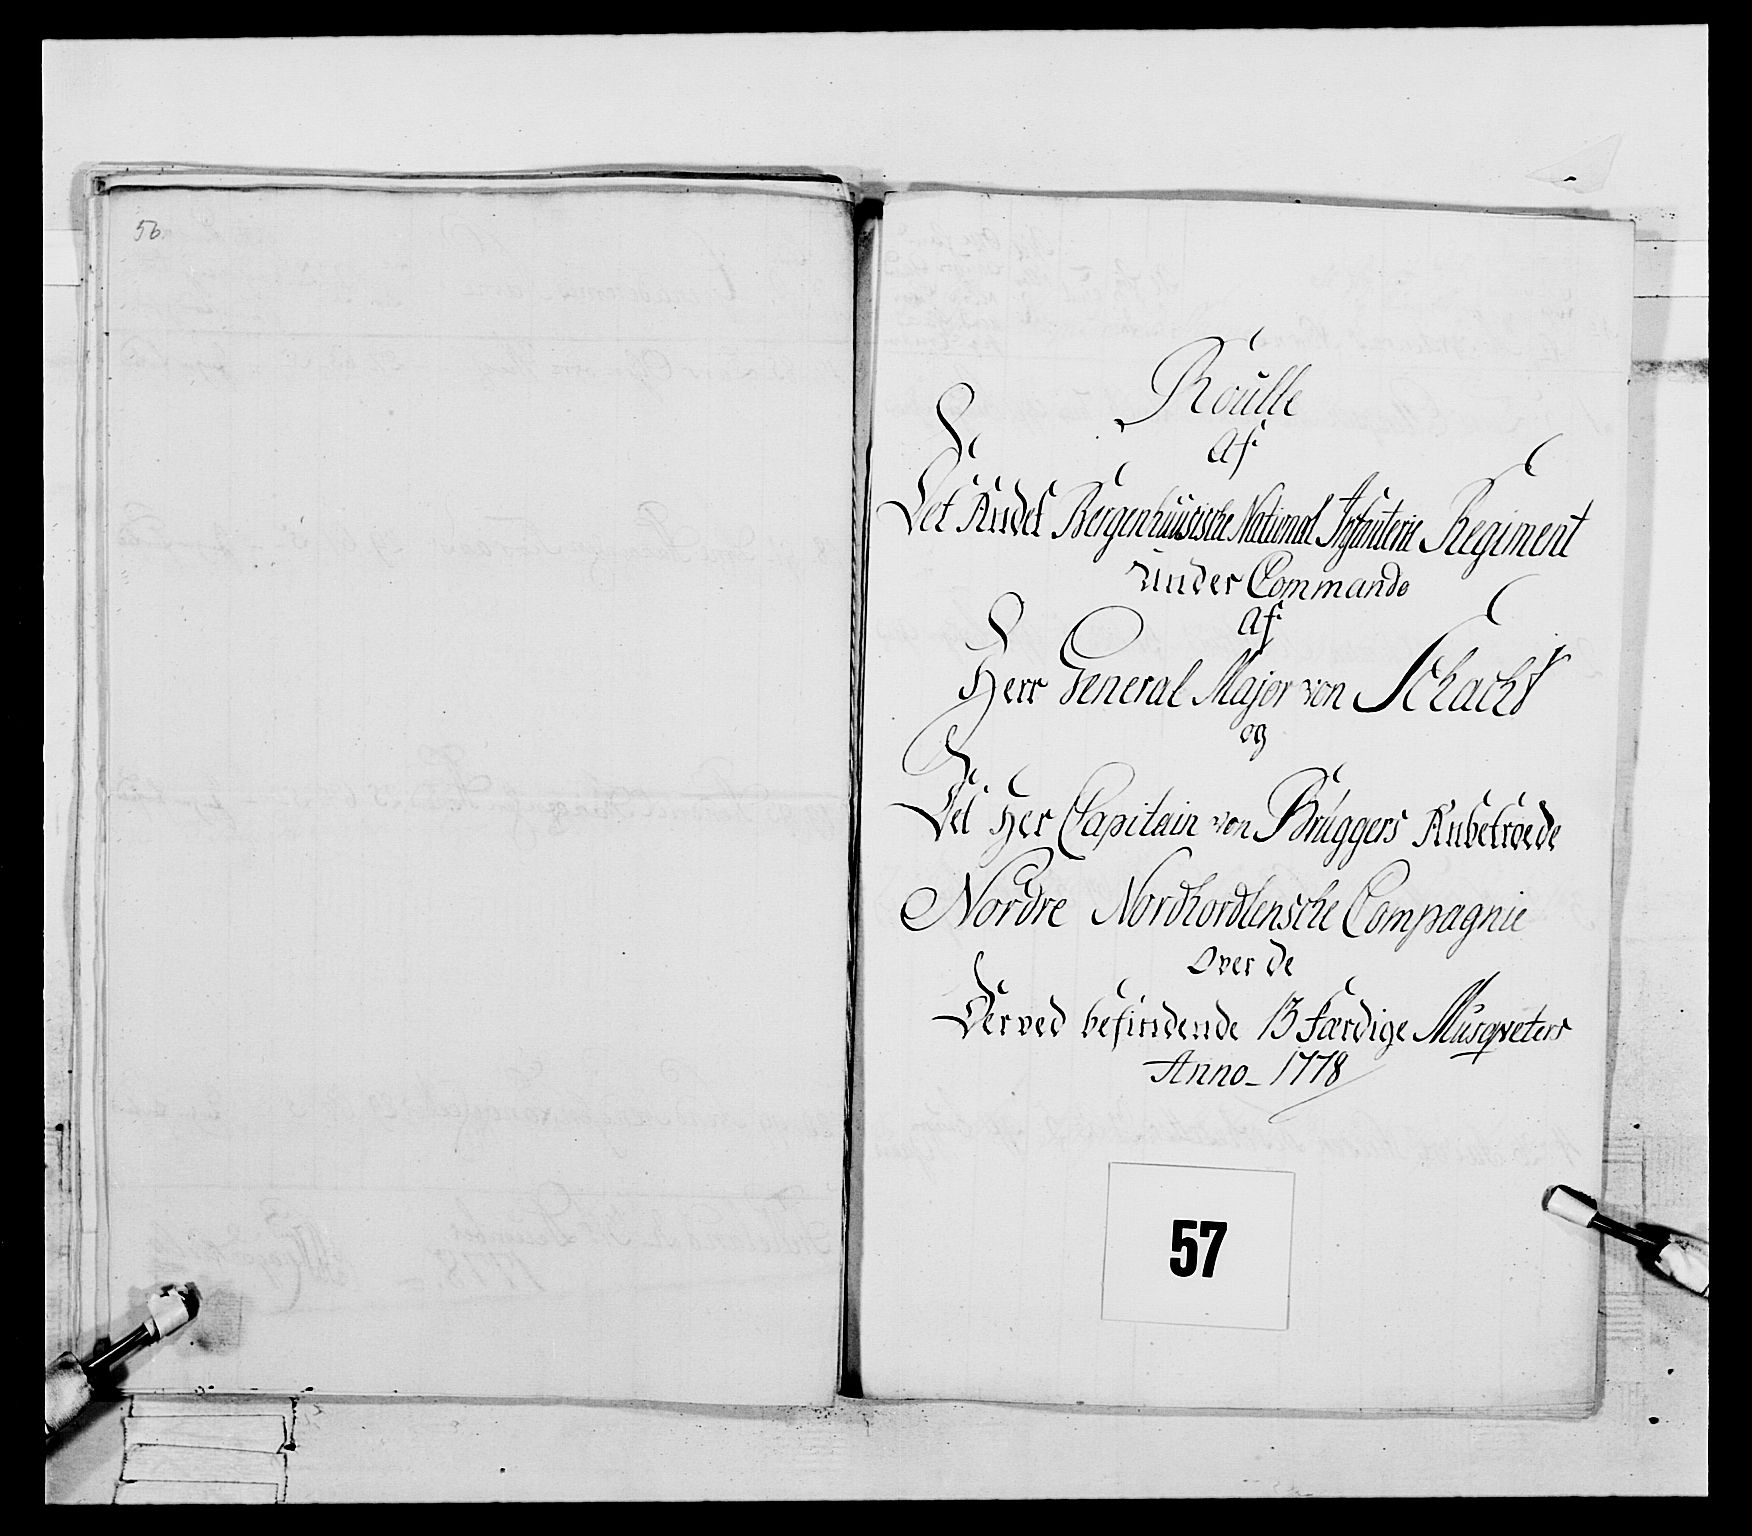 56.
Roulle
af
Det Andet Bergenhuusische National Infanterie Regiment
under Commando
af
Herr General Major von Schacht
og
Det Her Capitain von Brüggers Anbetroede
Nordre Nordhordlensche Compagnie
over de
Derved befindende 13 Færdige Musqveters
Anno_ 1778
57